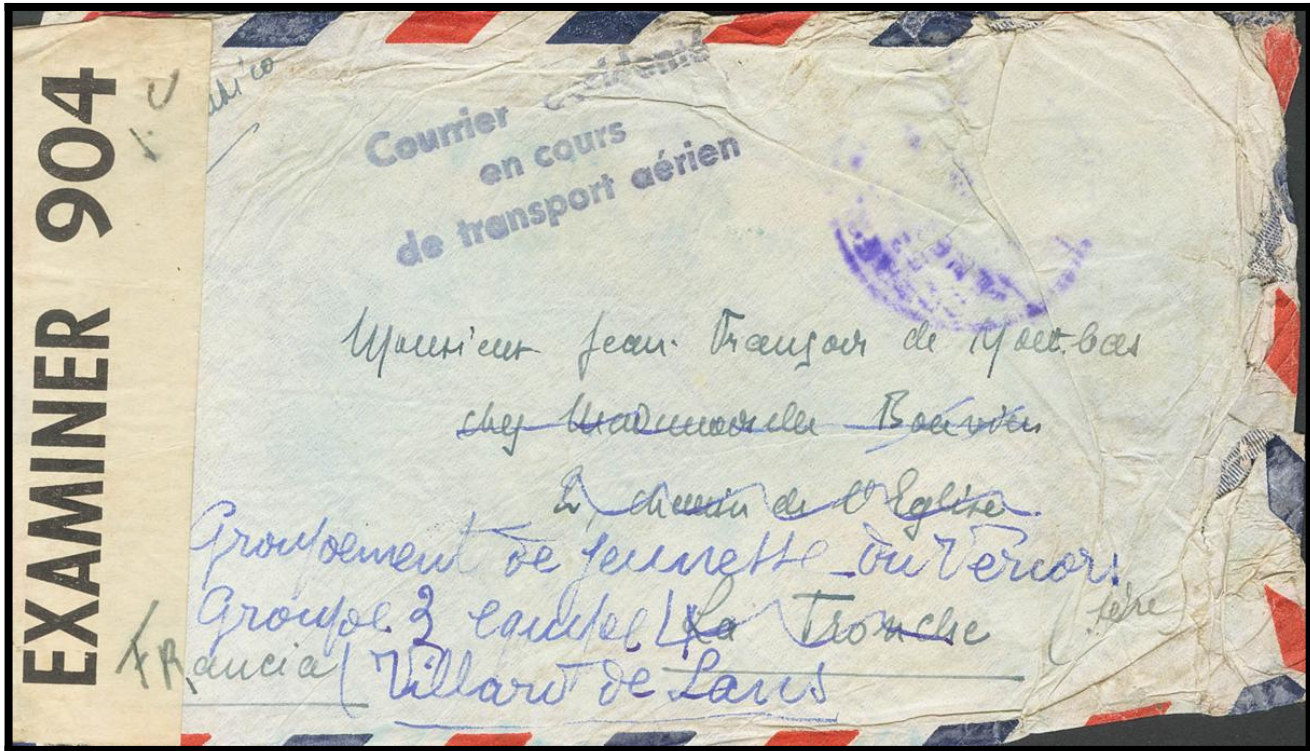 EXAMINER 904
Courrier accidenté
en cours
de transport aérien
Monsieur Jean François de Montbas
chez Mademoiselle Bouvier
2, chemin de l'Eglise
Groupement de jeunesse du Vercors
Groupe 3 equipe La Tronche Isère
Francia Villard de Lans